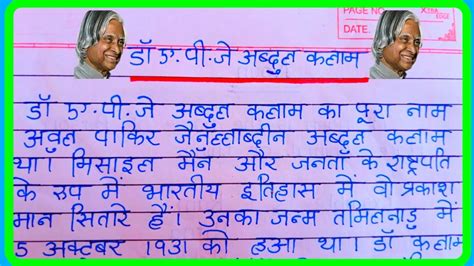 PAGE NO.
DATE.
XTRA EDGE
डॉ ए.पी.जे अब्दुल कलाम
डॉ ए.पी.जे अब्दुल कलाम का पूरा नाम
अवुल पाकिर जैनुल्लाब्दीन अब्दुल कलाम
था। मिसाइल मैन और जनता के राष्ट्रपति
के रूप में भारतीय इतिहास में वो प्रकाश
मान सितारे हैं। उनका जन्म तमिलनाडु में
5 अक्टूबर 1931 को हुआ था। डॉ कलाम